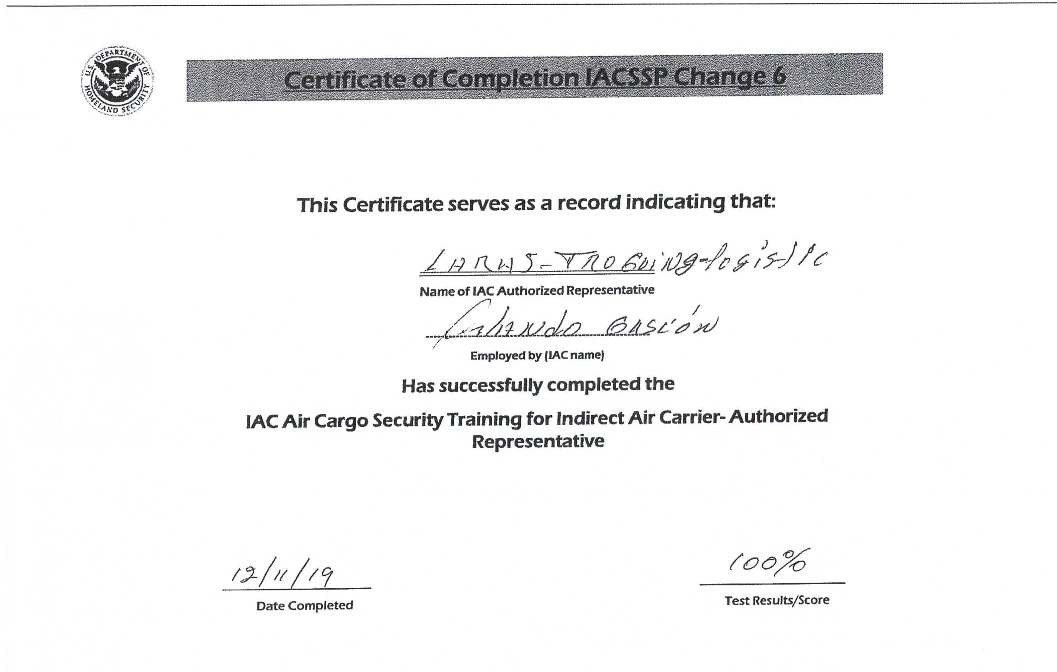 U.S. DEPARTMENT OF HOMELAND SECURITY
Certificate of Completion IACSSP Change 6
This Certificate serves as a record indicating that:
Name of IAC Authorized Representative
Employed by (IAC name)
Has successfully completed the
IAC Air Cargo Security Training for Indirect Air Carrier- Authorized
Representative
12/11/19
100%
Date Completed
Test Results/Score